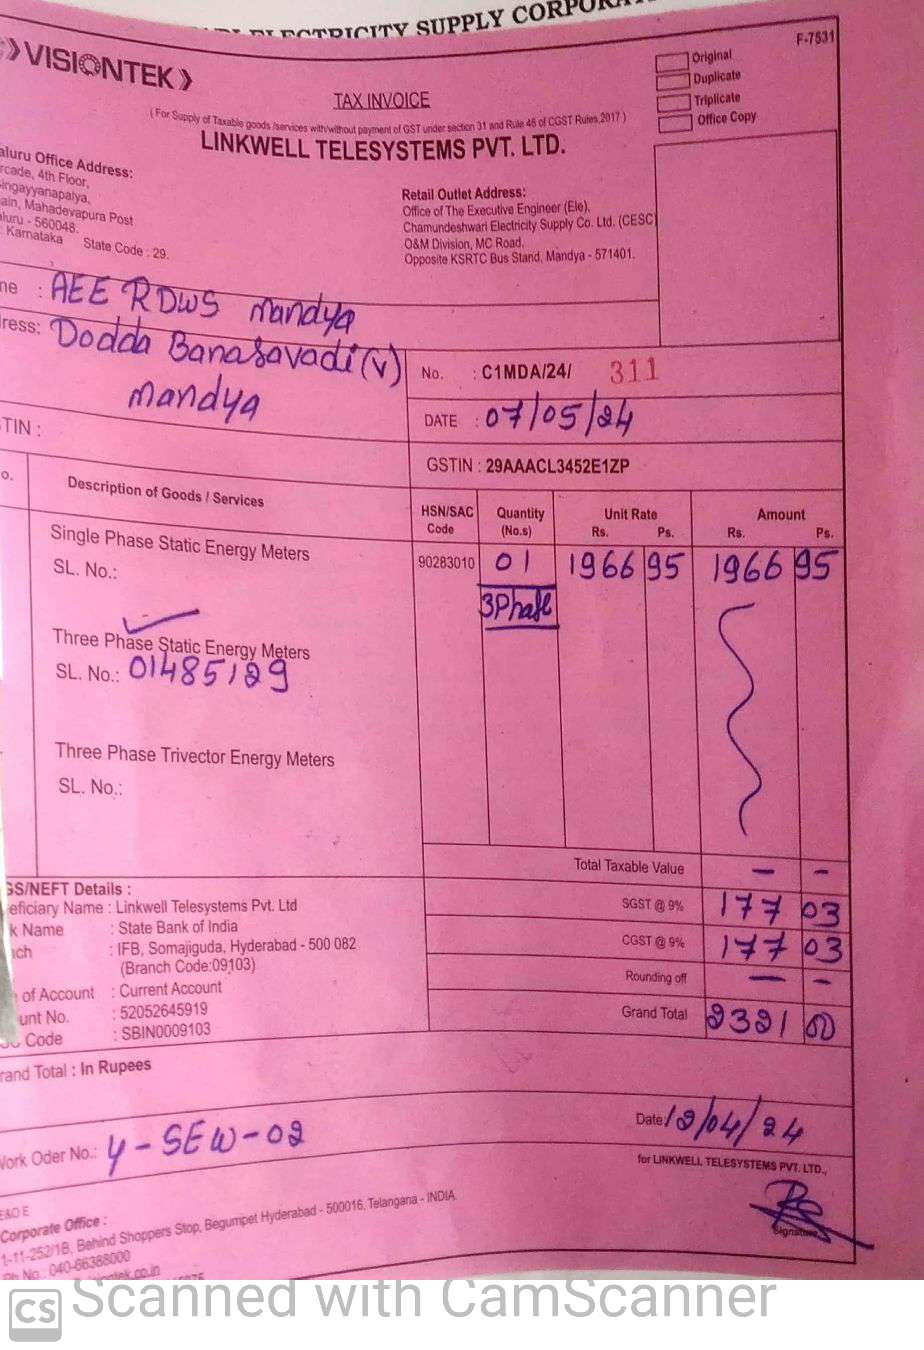 ELECTRICITY SUPPLY
VISIONTEK
F-7531
Original
Duplicate
Triplicate
Office Copy
TAX INVOICE
( For Supply of Taxable goods /services with/without payment of GST under section 31 and Rule 46 of CGST Rules,2017 )
LINKWELL TELESYSTEMS PVT. LTD.
Office Address:
4th Floor,
Mahadevapura Post
- 560048.
Karnataka State Code : 29.
Retail Outlet Address:
Office of The Executive Engineer (Ele),
Chamundeshwari Electricity Supply Co. Ltd. (CESC)
O&M Division, MC Road,
Opposite KSRTC Bus Stand, Mandya - 571401.
: AEE RDWS Mandya
Dodda Banasavadi (v)
Mandya
No. : C1MDA/24/ 311
DATE : 07/05/24
GSTIN : 29AAACL3452E1ZP
Description of Goods / Services
HSN/SAC Code
Quantity (No.s)
Unit Rate Rs. Ps.
Amount Rs. Ps.
Single Phase Static Energy Meters
SL. No.:
90283010 01 1966 95 1966 95
3Phase
Three Phase Static Energy Meters
SL. No.: 01485129
Three Phase Trivector Energy Meters
SL. No.:
Total Taxable Value — –
SGST @ 9% 177 03
CGST @ 9% 177 03
Rounding off — –
Grand Total 2321 00
GS/NEFT Details :
eficiary Name : Linkwell Telesystems Pvt. Ltd
k Name : State Bank of India
: IFB, Somajiguda, Hyderabad - 500 082
(Branch Code:09103)
of Account : Current Account
unt No. : 52052645919
Code : SBIN0009103
rand Total : In Rupees
Work Oder No.: Y-SEW-02
Date 12/04/24
for LINKWELL TELESYSTEMS PVT. LTD.,
Signature
E&O E
Corporate Office :
1-11-252/1B, Behind Shoppers Stop, Begumpet Hyderabad - 500016, Telangana - INDIA
Ph No : 040-66388000
CS Scanned with CamScanner